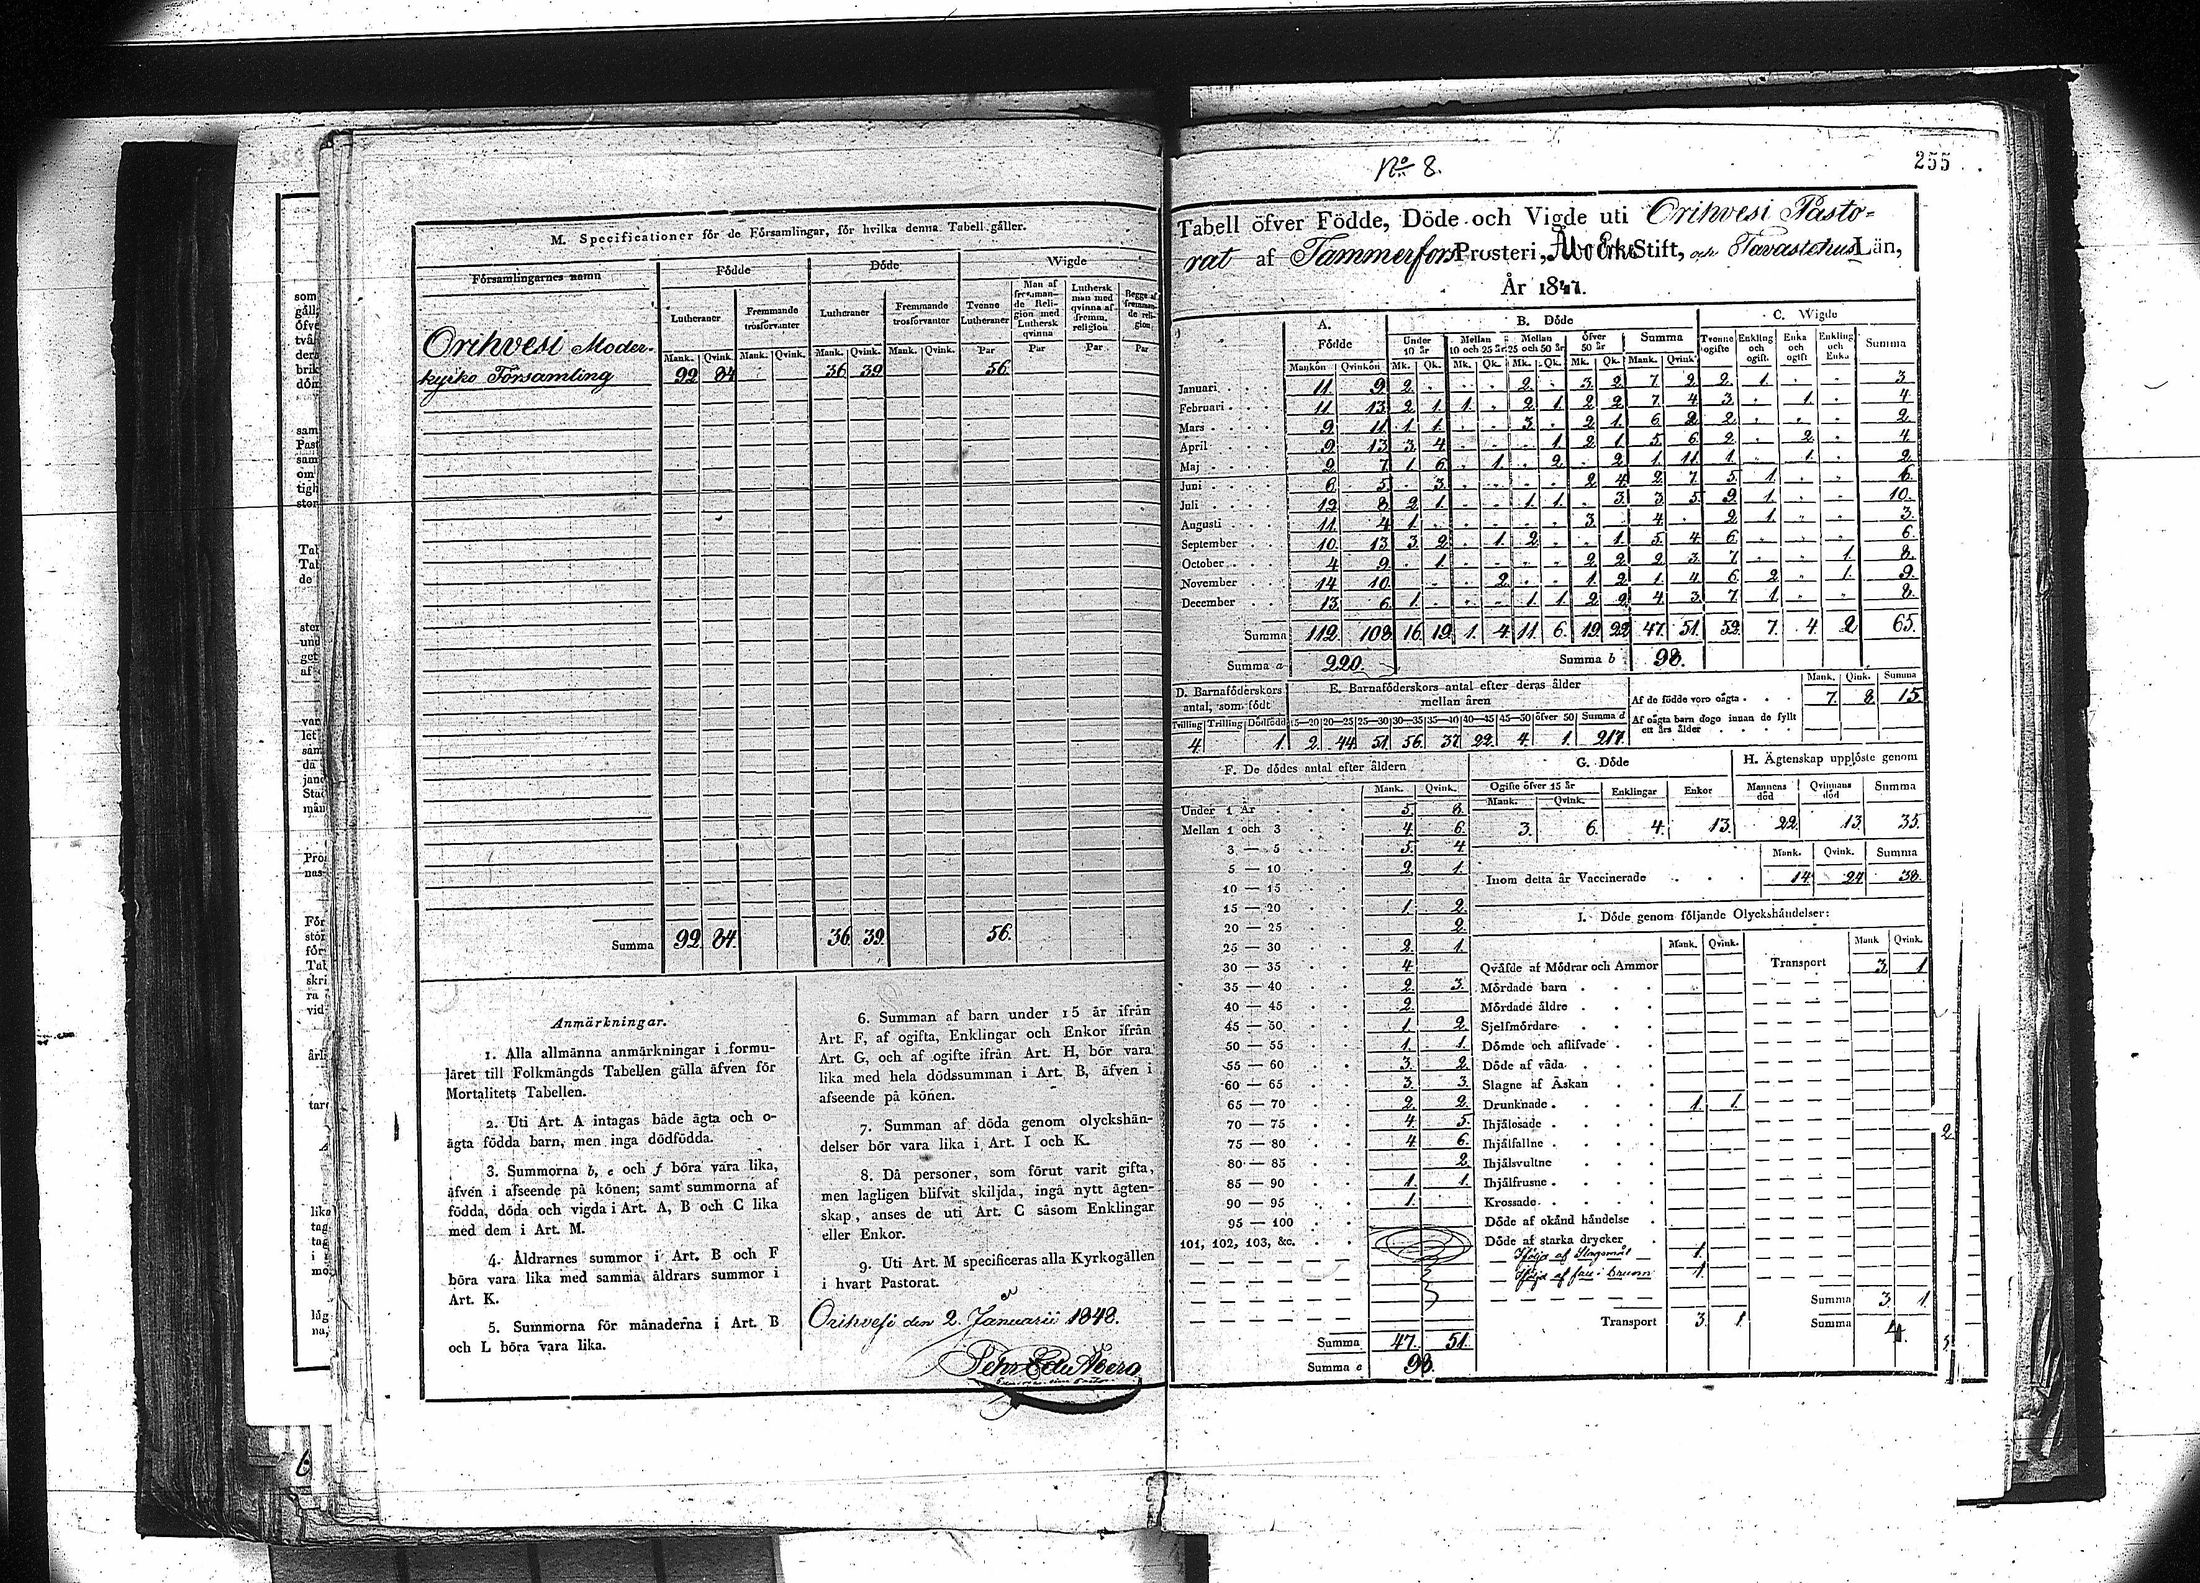 M. Specificationer för de Församlingar, för hvilka denna Tabell gäller.
Församlingarnes namn Födde Döde Wigde
Lutheraner Fremmande trosförvanter Lutheraner Fremmande trosförvanter Tvenne Lutheraner Man af fremmande Religion med Luthersk qvinna Luthersk man med qvinna af fremm. religion Begge af fremmande religion
Mank. Qvink. Mank. Qvink. Mank. Qvink. Mank. Qvink. Par Par Par Par
Orihvesi Moder-
kyrko Församling 99 84 36 39 56.
Summa 99 84 36 39 56.
Anmärkningar.
1. Alla allmänna anmärkningar i formu-
läret till Folkmängds Tabellen gälla äfven för
Mortalitets Tabellen.
2. Uti Art. A intagas både ägta och o-
ägta födda barn, men inga dödfödda.
3. Summorna b, e och f böra vara lika,
äfven i afseende på könen; samt summorna af
födda, döda och vigda i Art. A, B och C lika
med dem i Art. M.
4. Åldrarnes summor i Art. B och F
böra vara lika med samma åldrars summor i
Art. K.
5. Summorna för månaderna i Art. B
och L böra vara lika.
6. Summan af barn under 15 år ifrån
Art. F, af ogifta, Enklingar och Enkor ifrån
Art. G, och af ogifte ifrån Art. H, bör vara
lika med hela dödssumman i Art. B, äfven i
afseende på könen.
7. Summan af döda genom olyckshän-
delser bör vara lika i Art. I och K.
8. Då personer, som förut varit gifta,
men lagligen blifvit skiljda, ingå nytt ägten-
skap, anses de uti Art. C såsom Enklingar
eller Enkor.
9. Uti Art. M specificeras alla Kyrkogällen
i hvart Pastorat.
Orihvesi den 2. Januarii 1848.
No 8.
255
Tabell öfver Födde, Döde och Vigde uti Orihvesi Pasto-
rat af Tammerfors Prosteri, Åbo Erke Stift, och Tavastehus Län,
År 1847.
A. Födde B. Döde C. Wigde
Under 10 år Mellan 10 och 25 år Mellan 25 och 50 år Öfver 50 år Summa Tvenne ogifte Enkling och ogift. Enka och ogift Enkling och Enka Summa
Mankön Qvinkön Mk. Qk. Mk. Qk. Mk. Qk. Mk. Qk. Mank. Qvink.
Januari 11 9 2 . . . 2 . 3 2 7 2 2 1 . . 3
Februari 11 13 2 1 1 . 2 1 2 2 7 4 3 . 1 . 4
Mars 9 11 1 1 . . 3 . 2 1 6 2 2 . . . 2
April 9 13 3 4 . . . 1 2 1 5 6 2 . 2 . 4
Maj 2 7 1 6 . 1 . 2 . 2 1 11 1 . 1 . 2
Juni 6 5 . 3 . . . . 2 4 2 7 5 1 . . 6
Juli 12 8 2 1 . . 1 1 . 3 3 5 9 1 . . 10
Augusti 11 4 1 . . . . . 3 . 4 . 2 1 . . 3
September 10 13 3 2 . 1 2 . . 1 5 4 6 . . . 6
October 4 9 . 1 . . . . 2 2 2 3 7 . . 1 8
November 14 10 . . . 2 . . 1 2 1 4 6 2 . 1 9
December 13 6 1 . . . 1 1 2 2 4 3 7 1 . . 8
Summa 112 108 16 19 1 4 11 6 19 22 47 51 52 7 4 2 65
Summa a 220. Summa b 98.
D. Barnaföderskors antal, som födt E. Barnaföderskors antal efter deras ålder mellan åren
Tvilling Trilling Dödfödd 15—20 20—25 25—30 30—35 35—40 40—45 45—50 öfver 50 Summa d
4 1 2 44 51 56 37 22 4 1 217
Mank. Qink. Summa
Af de födde voro oägta 7 8 15
Af oägta barn dogo innan de fyllt
ett års ålder
F. De dödes antal efter åldern
Mank. Qvink.
Under 1 År 5 8
Mellan 1 och 3 4 6
3 — 5 5 4
5 — 10 2 1
10 — 15
15 — 20 1 2
20 — 25 2
25 — 30 2 1
30 — 35 4
35 — 40 2 3
40 — 45 2
45 — 50 1 2
50 — 55 1 1
55 — 60 3 2
60 — 65 3 3
65 — 70 2 2
70 — 75 4 5
75 — 80 4 6
80 — 85 2
85 — 90 1 1
90 — 95 1
95 — 100
101, 102, 103, &c.
Summa 47 51
Summa e 98.
G. Döde
Ogifte öfver 15 år Enklingar Enkor
Mank. Qvink.
3. 6. 4. 13.
H. Ägtenskap upplöste genom
Mannens död Qvinnans död Summa
22 13 35
Mank. Qvink. Summa
Inom detta år Vaccinerade 14 24 38
I. Döde genom följande Olyckshändelser:
Mank. Qvink. Mank Qvink.
Qväfde af Mödrar och Ammor Transport 3 1
Mördade barn
Mördade äldre
Sjelfmördare
Dömde och aflifvade
Döde af våda
Slagne af Åskan
Drunknade 1 1
Ihjälosade
Ihjälfallne
Ihjälsvultne
Ihjälfrusne
Krossade
Döde af okänd händelse
Döde af starka drycker
Ihjäl af Slagsmål 1
1
Summa 3 1
Transport 3 1 Summa 4